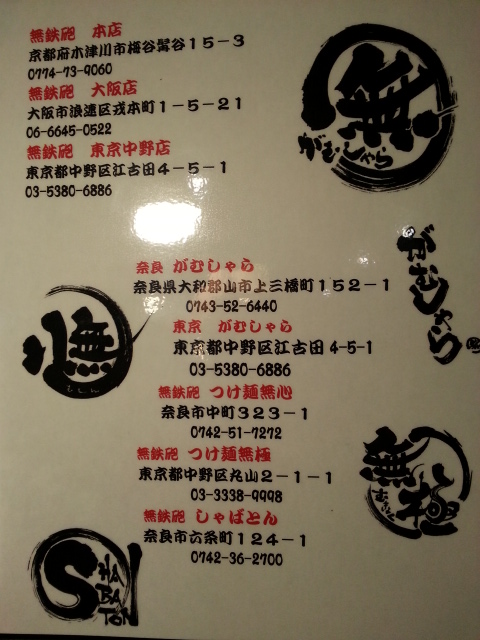 無鉄砲 本店
京都府木津川市梅谷髯谷15-3
0774-73-9060
無鉄砲 大阪店
大阪市浪速区戎本町1-5-21
06-6645-0522
無鉄砲 東京中野店
東京都中野区江古田4-5-1
03-5380-6886
無
がむしゃら
奈良 がむしゃら
奈良県大和郡山市上三橋町152-1
0743-52-6440
東京 がむしゃら
東京都中野区江古田4-5-1
03-5380-6886
がむしゃら
無心
むしん
無鉄砲 つけ麺無心
奈良市中町323-1
0742-51-7272
無鉄砲 つけ麺無極
東京都中野区丸山2-1-1
03-3338-9998
無極
むきょく
無鉄砲 しゃばとん
奈良市六条町124-1
0742-36-2700
SHABATON